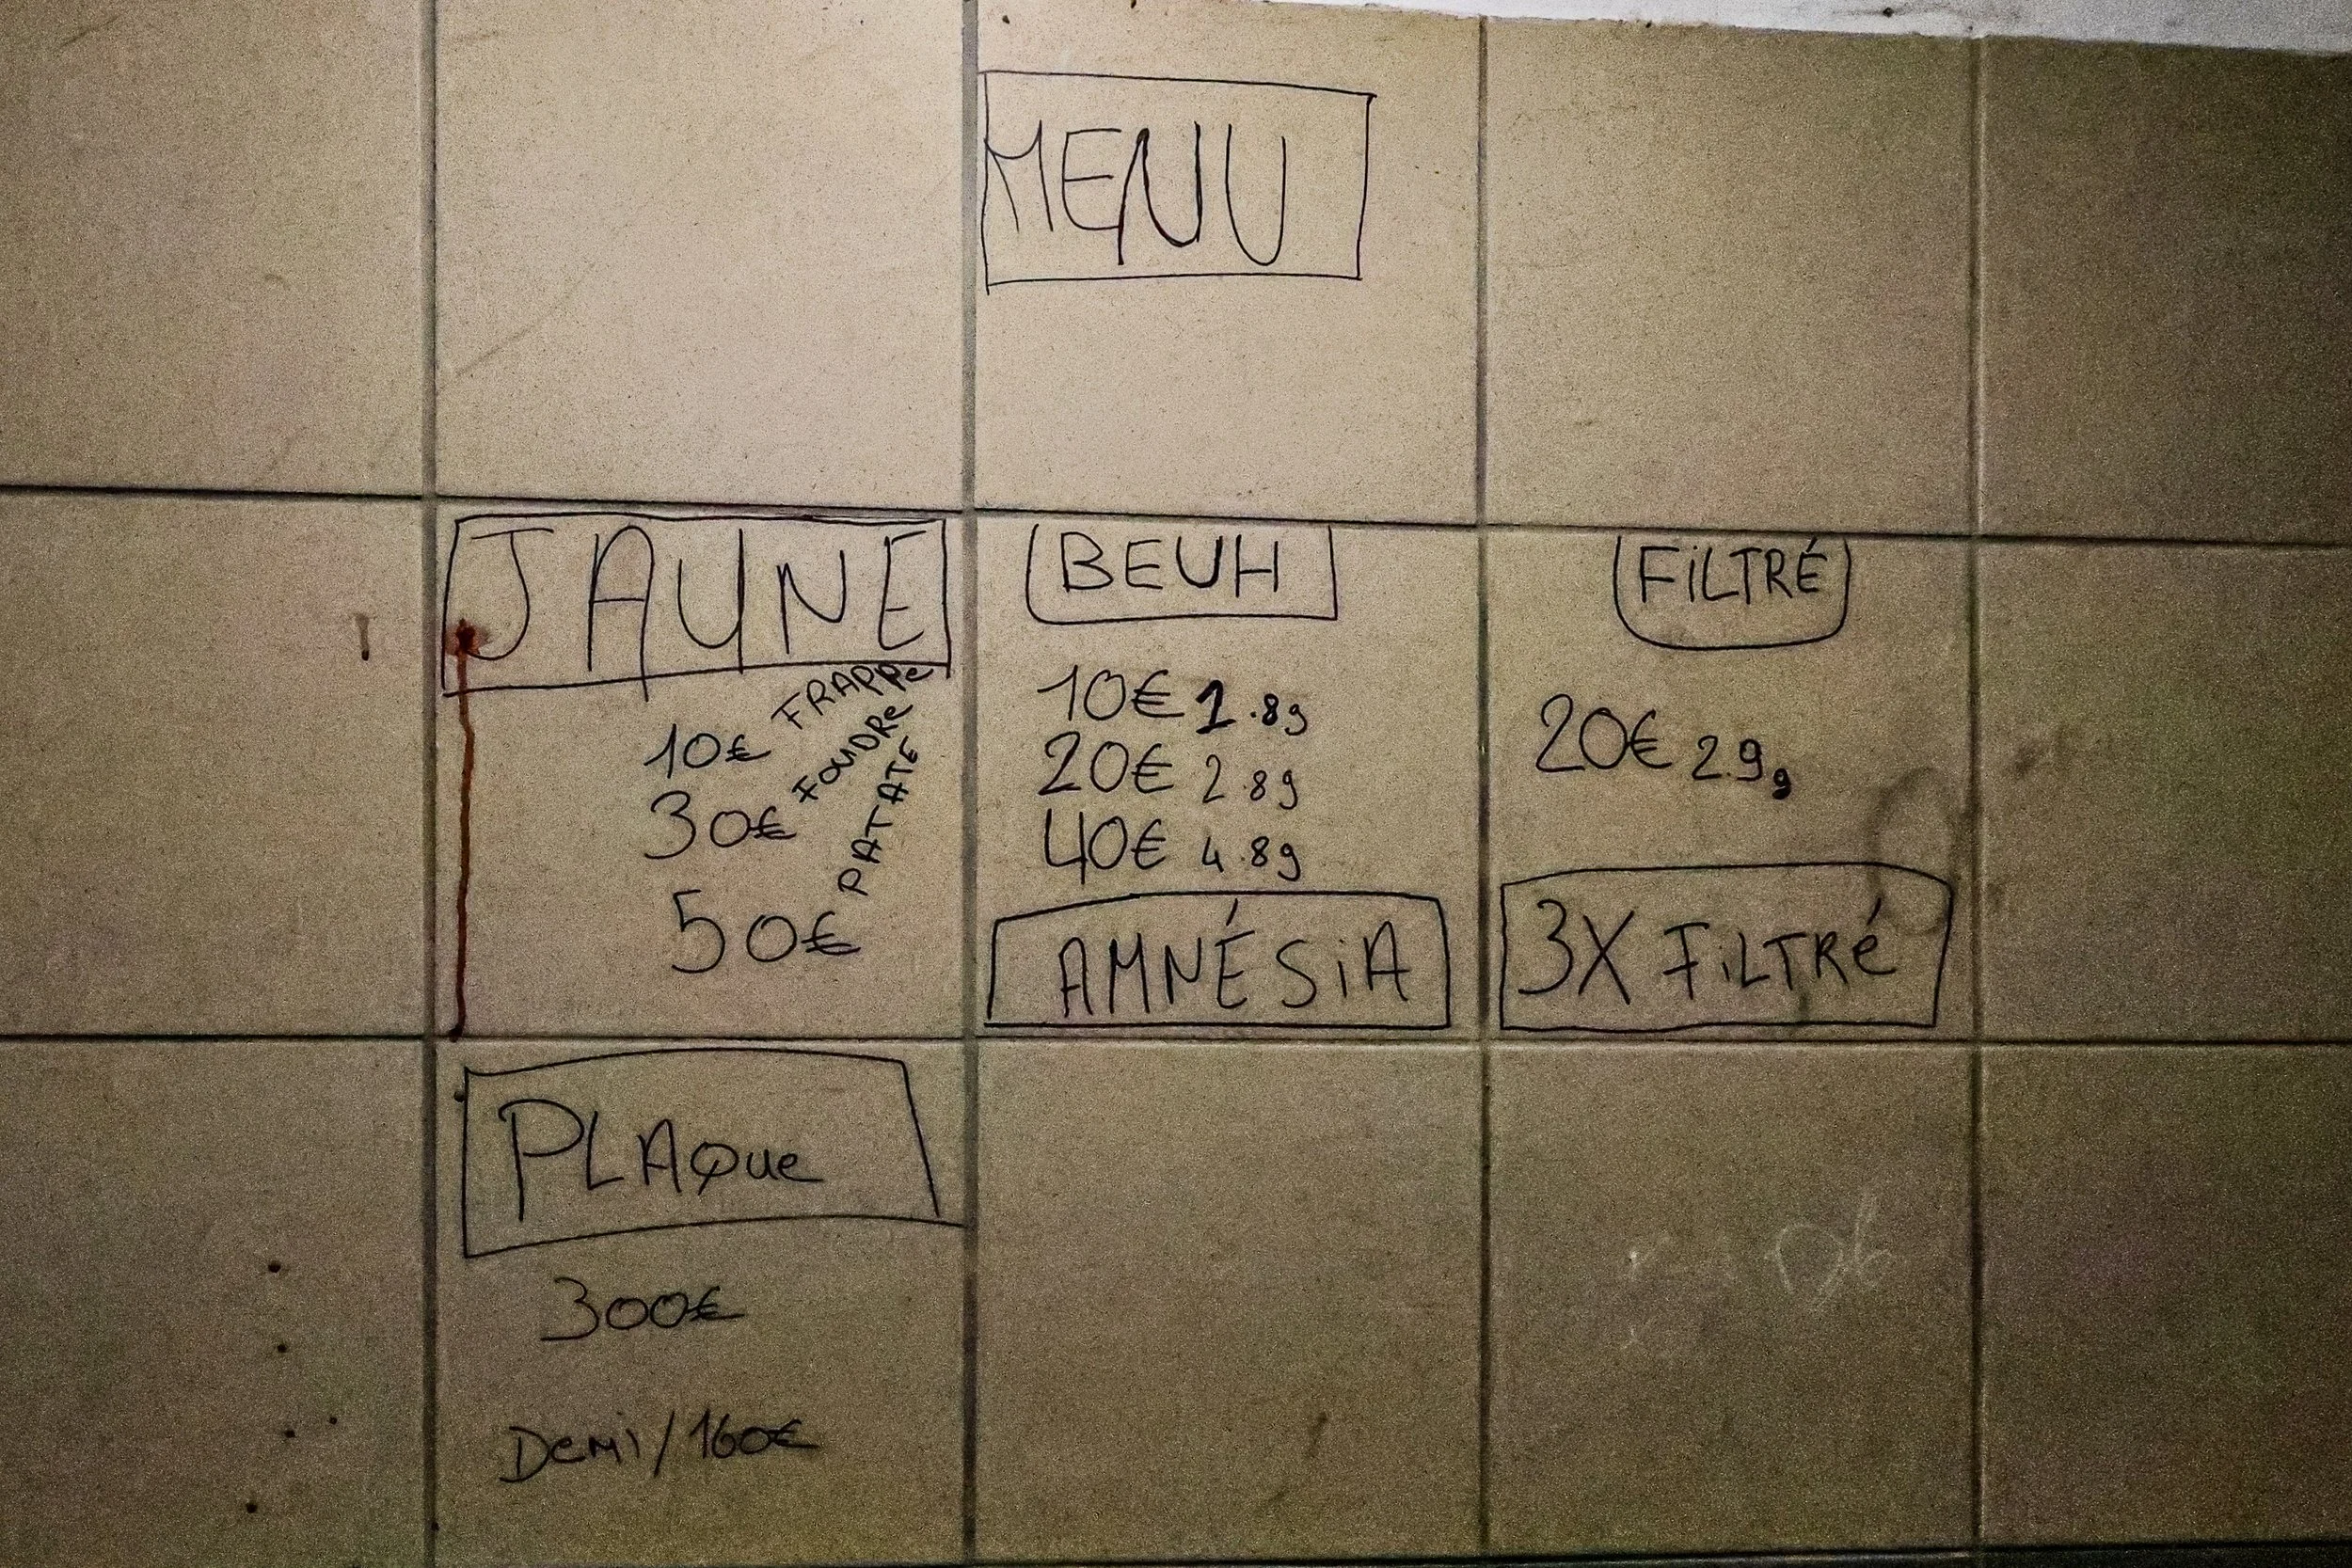 MENU
JAUNE
FRAPPe
10€
FOUDRe
30€
PATATE
50€
BEUH
10€ 1.8g
20€ 2.8g
40€ 4.8g
AMNÉSiA
FiLTRÉ
20€ 2.9g
3X FiLTRé
PLAQue
300€
Demi/160€